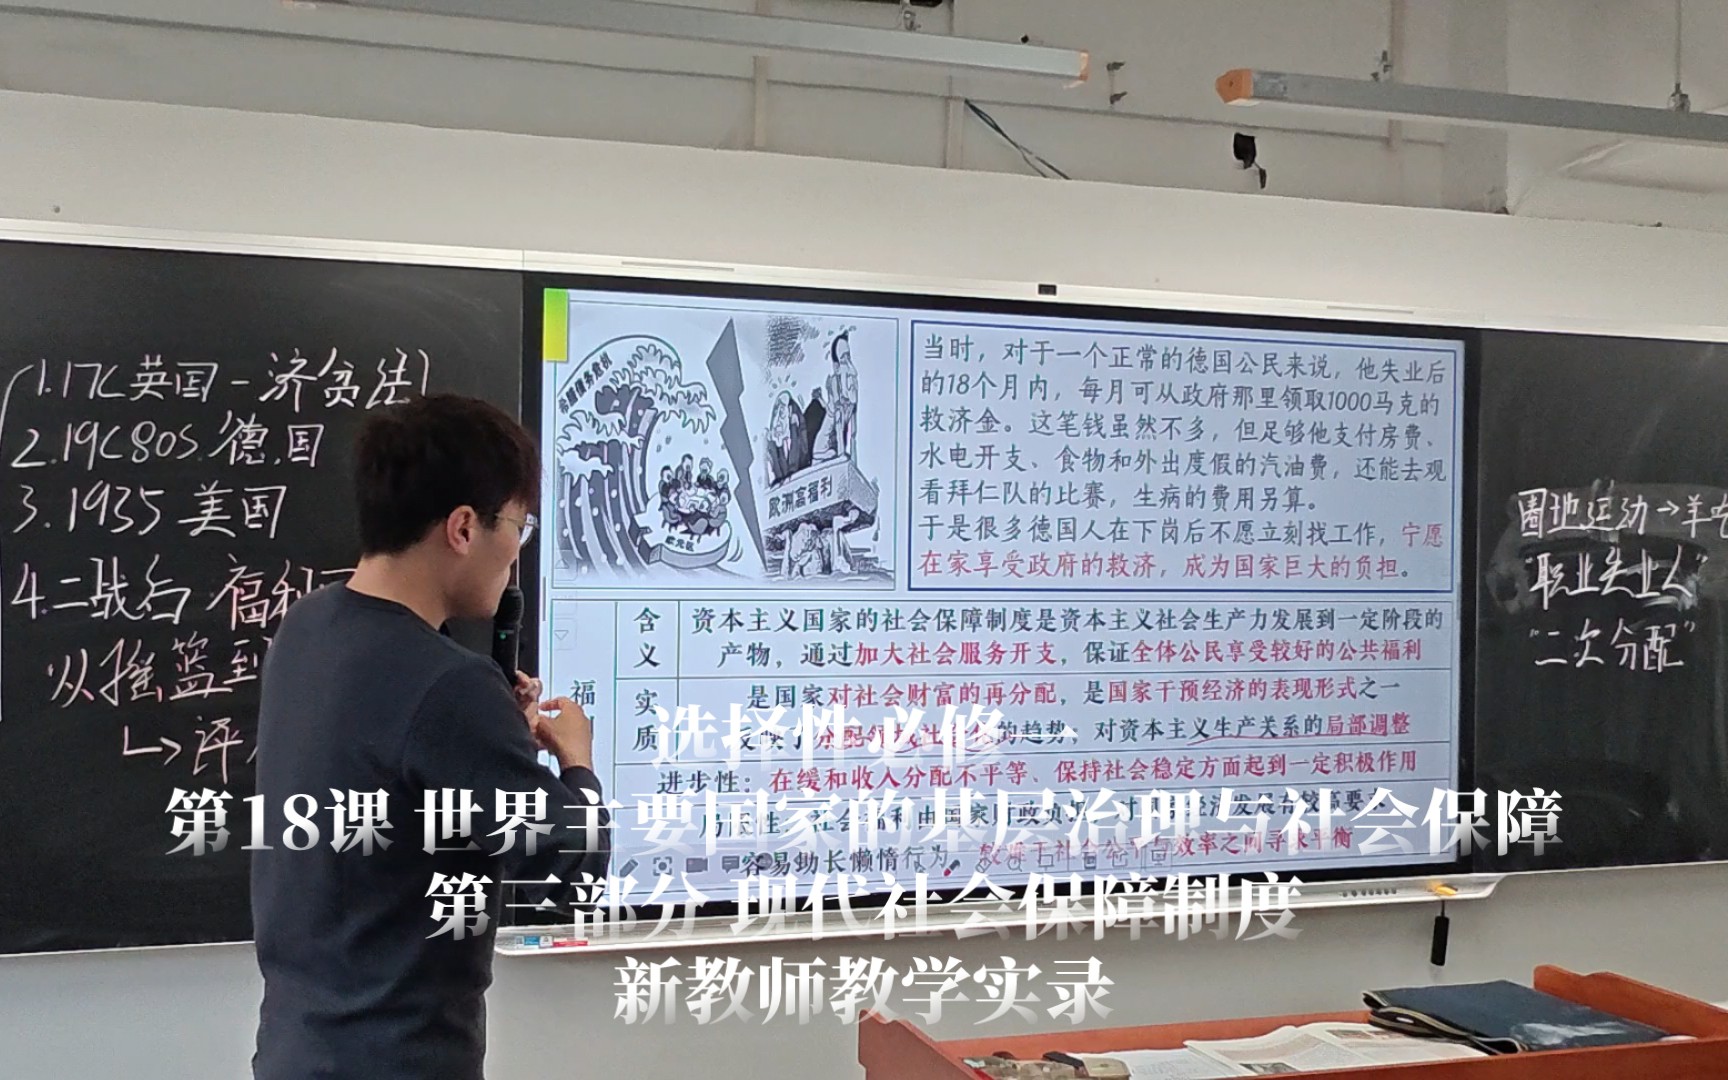 1.17C英国-济贫法
2.19C80s.德国
3.1935 美国
4.二战后 福利
从摇篮到
↳评
希腊债务危机
欧元区
欧洲高福利
当时，对于一个正常的德国公民来说，他失业后
的18个月内，每月可从政府那里领取1000马克的
救济金。这笔钱虽然不多，但足够他支付房费、
水电开支、食物和外出度假的汽油费，还能去观
看拜仁队的比赛，生病的费用另算。
于是很多德国人在下岗后不愿立刻找工作，宁愿
在家享受政府的救济，成为国家巨大的负担。
福
含义
资本主义国家的社会保障制度是资本主义社会生产力发展到一定阶段的
产物，通过加大社会服务开支，保证全体公民享受较好的公共福利
实质
是国家对社会财富的再分配，是国家干预经济的表现形式之一
的趋势，对资本主义生产关系的局部调整
进步性：在缓和收入分配不平等、保持社会稳定方面起到一定积极作用
容易助长懒惰行为
效率之间寻求平衡
圈地运动→羊
“职业失业人”
“二次分配”
选择性必修一
第18课 世界主要国家的基层治理与社会保障
第三部分 现代社会保障制度
新教师教学实录